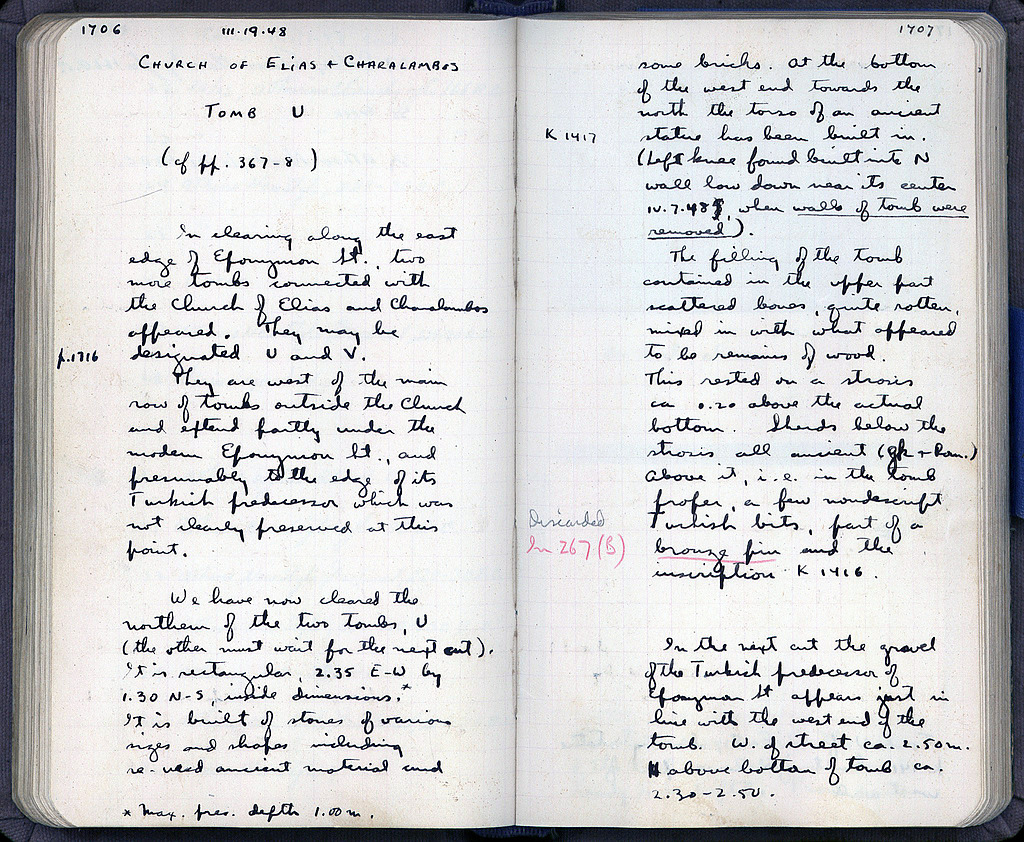 1706
III.19.48
CHURCH OF ELIAS + CHARALAMBOS
TOMB U
(cf pp. 367-8)
In clearing along the east
edge of Eponymon St., two
more tombs connected with
the Church of Elias and Charalambos
appeared. They may be
p.1716
designated U and V.
They are west of the main
row of tombs outside the Church
and extend partly under the
modern Eponymon St., and
presumably to the edge of its
Turkish predecessor which was
not clearly preserved at this
point.
We have now cleared the
northern of the two tombs, U
(the other must wait for the next cut).
It is rectangular, 2.35 E-W by
1.30 N-S, inside dimensions.*
It is built of stones of various
sizes and shapes including
re-used ancient material and
* Max. pres. depth 1.00 m.
1707
some bricks. At the bottom
of the west end towards the
north the torso of an ancient
K 1417
statue has been built in.
(Left knee found built into N
wall low down near its center
IV.7.48, when walls of tomb were
removed).
The filling of the tomb
contained in the upper part
scattered bones, quite rotten,
mixed in with what appeared
to be remains of wood.
This rested on a strosis
ca 0.20 above the actual
bottom. Sherds below the
strosis all ancient (gk + Rom.)
Above it, i.e. in the tomb
proper, a few nondescript
Discarded
Turkish bits, part of a
In 267 (B)
bronze pin and the
inscription K 1416.
In the next cut the gravel
of the Turkish predecessor of
Eponymon St appears just in
line with the west end of the
tomb. W. of street ca. 2.50 m.
above bottom of tomb ca.
2.30-2.50.